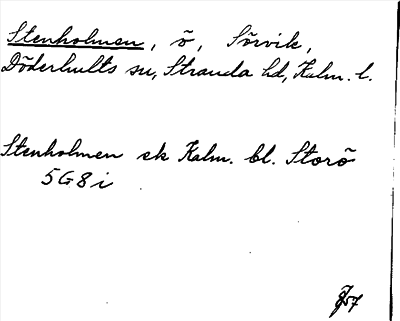 Stenholmen, ö, Sörvik,
Döderhults sn, Stranda hd, Kalm. l.
Stenholmen ek Kalm. bl. Storö
5G8i